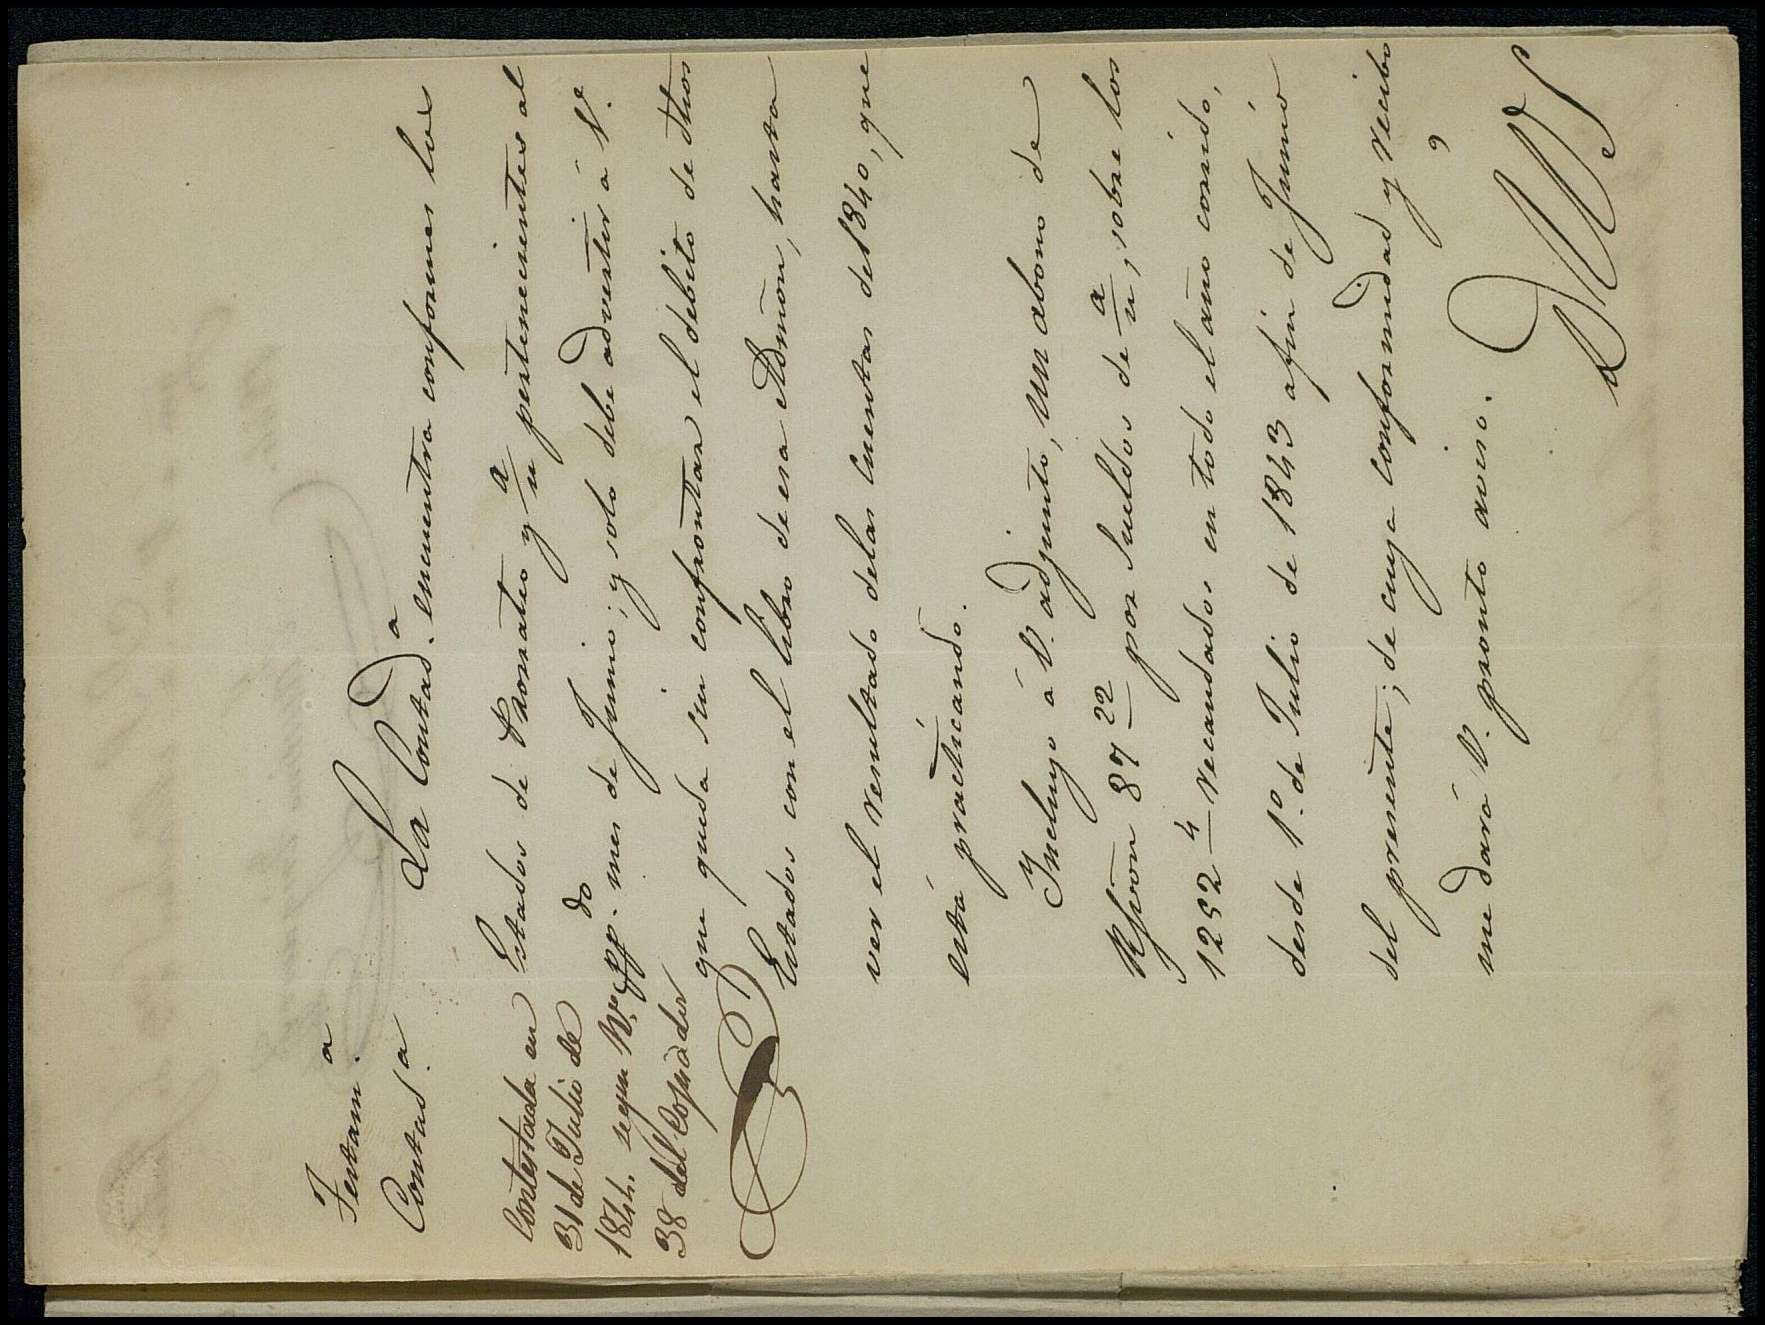 Festam.ª
Contad.ª
Contestada en
31 de Julio de
1844. segun N.º
38 del Copiador
La Contad.ª encuentra conformes los
Estados de Prorrateo y a/u pertenecientes al
pp.do mes de Junio; y solo debe advertir á V.
que queda sin confrontar el debito de dhos
Estados con el libro de esa Admon, hasta
ver el resultado delas Cuentas del 1840, que
está practicando.
Incluyo á V. adjunto, un abono de
Rs von 87 22 por sueldos de a/u, sobre los
1252 4 recaudados en todo el año corrido,
desde 1.º de Julio de 1843 a fin de Junio
del presente; de cuya conformidad y recibo
me dará V. pronto aviso.